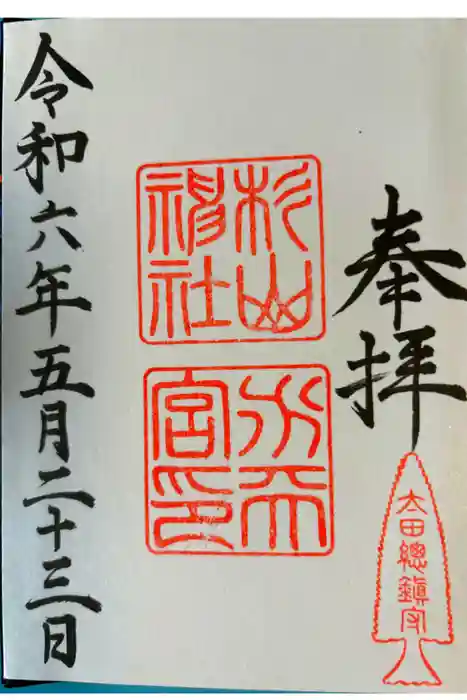 奉拝
太田總鎮守
杉山
神社
水天
宮印
令和六年五月二十三日